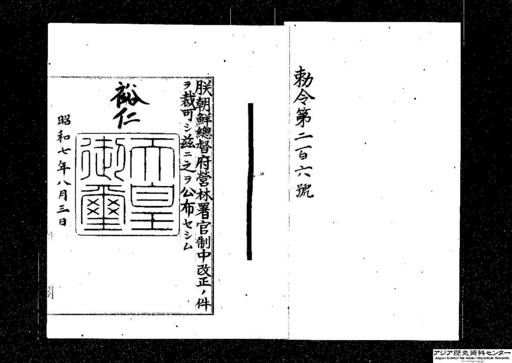 勅令第二百六號
朕朝鮮總督府營林署官制中改正ノ件
ヲ裁可シ茲ニ之ヲ公布セシム
裕仁
天皇
御璽
昭和七年八月三日
アジア歴史資料センター
Japan Center for Asian Historical Records